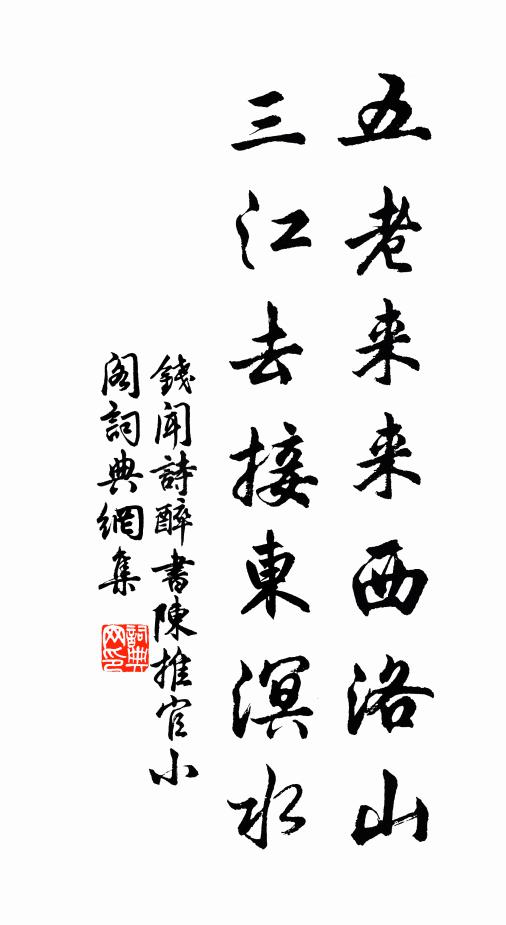 五老来来西洛山
三江去接東溟水
錢聞詩醉書陳推官小
閣詞典網集
詞典
网印